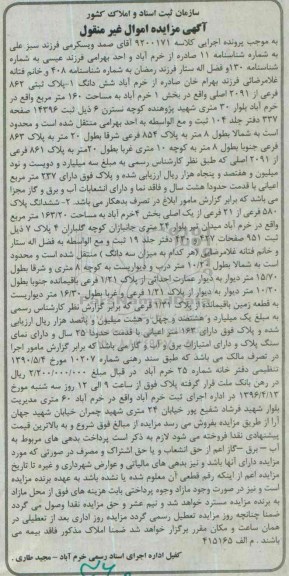 سازمان ثبت اسناد و املاک کشور
آگهی مزایده اموال غیر منقول
به موجب پرونده اجرایی کلاسه ۹۲۰۰۱۷۱ آقای صمد ویسکرمی فرزند سبز علی
به شماره شناسنامه ۱۱ صادره از خرم آباد و احد بهرامی فرزند عیسی به شماره
شناسنامه ۱۳۰ و فضل اله ستار فرزند رمضان به شماره شناسنامه ۴۰۸ و خانم فتانه
غلامرضائی فرزند بهرام خان صادره از خرم آباد شش دانگ ۱-پلاک ثبتی ۸۶۲
فرعی از ۲۰۹۱ اصلی واقع در بخش ۱ خرم آباد به مساحت ۱۶۰ متر مربع واقع در
خرم آباد بلوار ۳۰ متری شهید پژوهنده کوچه نسترن ۶ ذیل ثبت ۱۴۳۹۶ صفحه
۳۳۷ دفتر جلد ۱۰۴ ثبت و مع الواسطه به احد بهرامی منتقل شده است و محدود
است به شمالا بطول ۸ متر به پلاک ۸۵۴ فرعی شرقا بطول ۲۰ متر به پلاک ۸۶۳
فرعی جنوبا بطول ۸ متر به کوچه ۱۰ متری غربا بطول ۲۰ متر به پلاک ۸۶۱ فرعی
از ۲۰۹۱ اصلی که طبق نظر کارشناس رسمی به مبلغ سه میلیارد و دویست و نود
میلیون و هفتصد و پنجاه هزار ریال ارزیابی شده و پلاک فوق دارای ۲۳۷ متر مربع
اعیانی با قدمت حدودا هشت سال و فاقد نما و دارای انشعابات آب و برق و گاز مجزا
می باشد که برابر گزارش مامور ابلاغ در تصرف بدهکار می باشد. ۲- ششدانگ پلاک
۵۸۰ فرعی از ۲۱ فرعی از یک اصلی بخش ۴ خرم آباد به مساحت ۱۶۳/۲۰ متر مربع
واقع در خرم آباد میدان تیر بلوار ۲۴ متری جانبازان کوچه گلباران ۴ پلاک ۷ ذیل
ثبت ۹۵۱ صفحات دفتر جلد ۱۹ ثبت و مع الواسطه به فضل اله ستار
و خانم فتانه غلامرضائی (هر کدام به میزان سه دانگ) منتقل شده است و محدود
است به شمالا بطول ۱۰/۲۰ متر درب و دیواریست به کوچه ۸ متری و شرقا بطول
۱۵/۷۰ متر دیوار به دیوار عمارت احداثی از پلاک ۱/۲۱ فرعی باقیمانده جنوبا بطول
۱۰/۲۰ متر دیوار به دیوار از پلاک ۱/۲۱ فرعی و غربا بطول ۱۶/۳۰ متر دیواریست
به قطعه زمین باقیمانده از پلاک ۱/۲۱ فرعی که برابر گزارش نظر کارشناس رسمی
به مبلغ یک میلیارد و هشتصد و چهل و هشت میلیون و پانصد هزار ریال ارزیابی
شده و پلاک فوق دارای ۱۶۳ متر اعیانی با قدمت حدودا ۲۵ سال و دارای نمای
سنگ پلاک و دارای امتیازات برق و آب و گاز می باشد که طبق گزارش مامور اجرا
در تصرف مالک می باشد که طبق سند رهنی شماره ۱۰۲۰۷ مورخ ۱۳۹۰/۵/۴
تنظیمی دفتر خانه شماره ۲۵ خرم آباد در قبال مبلغ ۲/۲۰۰/۰۰۰/۰۰۰ ریال
در رهن بانک ملت قرار گرفته پلاک فوق از ساعت ۹ الی ۱۲ روز سه شنبه مورخ
۱۳۹۶/۴/۱۳ در اداره اجرای ثبت خرم آباد واقع در خرم آباد ۶۰ متری مدیریت
بلوار شهید فرشاد شفیع پور خیابان ۲۴ متری شهید چمران خیابان شهید جهان
آرا از طریق مزایده بفروش می رسد مزایده از مبالغ فوق شروع و به بالاترین قیمت
پیشنهادی نقدا فروخته می شود لازم به ذکر است پرداخت بدهی های مربوط به
آب – برق – گاز اعم از حق انشعاب و یا حق اشتراک و مصرف در صورتی که مورد
مزایده دارای آنها باشد و نیز بدهی های مالیاتی و عوارض شهرداری و غیره تا تاریخ
مزایده اعم از اینکه رقم قطعی آن معلوم شده یا نشده باشد به عهده برنده مزایده
است و نیز در صورت وجود مازاد وجوه پرداختی بابت هزینه های فوق از محل مازاد
به برنده مزایده مسترد خواهد شد و نیم عشر و حق مزایده نقدا وصول می گردد
ضمنا چنانچه روز مزایده تعطیل رسمی گردد مزایده روز اداری بعد از تعطیلی در
همان ساعت و مکان مقرر برگزار خواهد شد ضمنا املاک مذکور فاقد بیمه می
باشند . م الف ۴۱۵۱۶۵
کفیل اداره اجرای اسناد رسمی خرم آباد – مجید طاری .